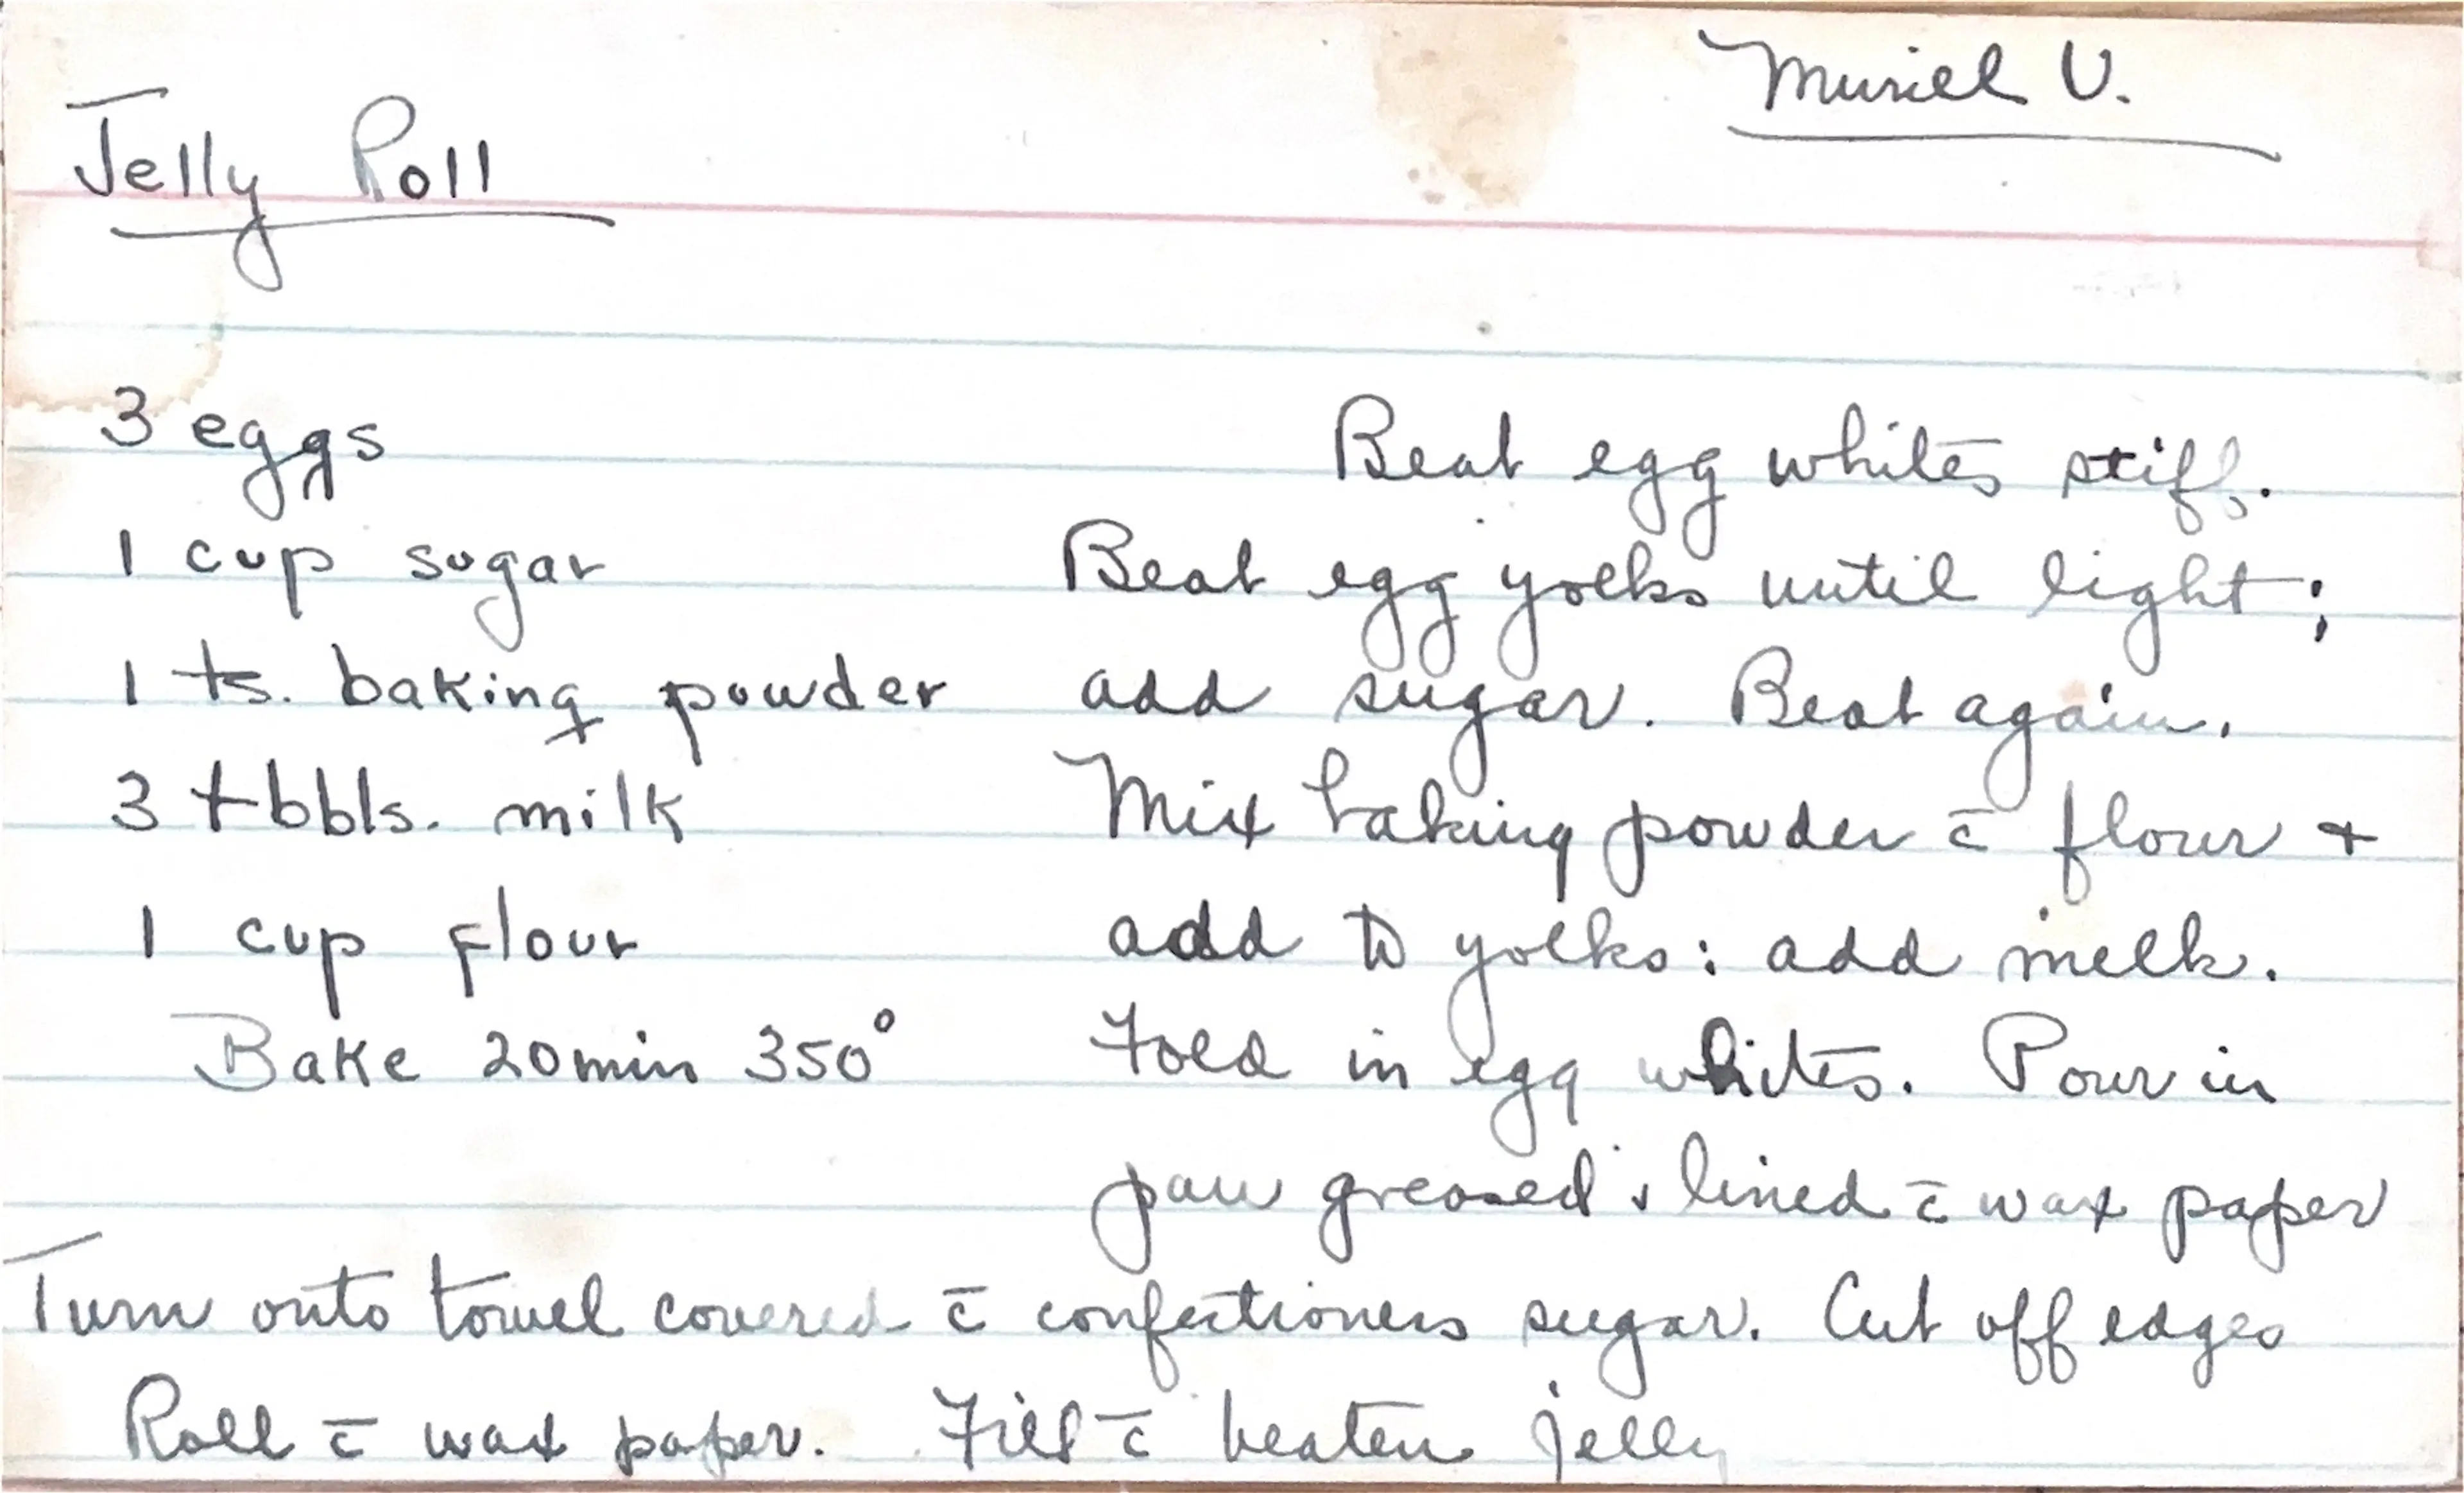 Muriel V.
Jelly Roll
3 eggs
1 cup sugar
1 ts. baking powder
3 tbbls. milk
1 cup flour
Bake 20 min 350°
Beat egg whites stiff.
Beat egg yolks until light;
add sugar. Beat again.
Mix baking powder c̄ flour +
add to yolks: add milk.
Fold in egg whites. Pour in
pan greased & lined c̄ wax paper
Turn onto towel covered c̄ confectioners sugar. Cut off edges
Roll c̄ wax paper. Fill c̄ beaten jelly